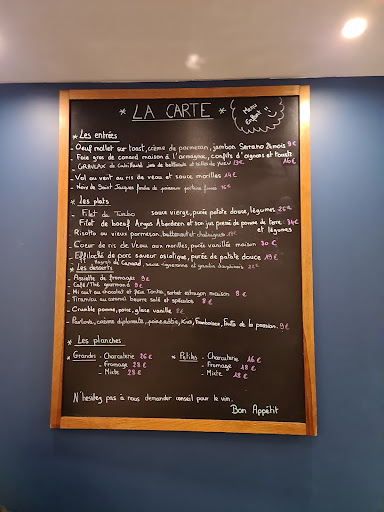 * LA CARTE *
Menu
Enfant
* Les entrées
- Oeuf mollet sur toast, crème de parmesan, jambon Serrano 24mois 9€
- Foie gras de canard maison à l'armagnac, confits d'oignons et toasts 16€
- GRAVLAX de
- Vol au vent au ris de veau et sauce morilles 14€
- Noix de Saint Jacques
* Les plats
- Filet de Turbo sauce vierge, purée patate douce, légumes 25€
- Filet de boeuf Angus Aberdeen et son jus, purée de pomme de terre 34€
et légumes
- Risotto au vieux parmesan, butternut et chataignes
- Coeur de ris de Veau aux morilles, purée vanillée maison 30€
- Effiloché de porc saveur asiatique, purée de patate douce 19€
- Magret de Canard, sauce vigneronne et gratin dauphinois 22€
* Les desserts
- Assiette de fromages 9€
- Café/Thé gourmand 9€
- Mi cuit au chocolat et fève Tonka, sorbet estragon maison 8€
- Tiramisu au caramel beurre salé et spéculos 8€
- Crumble pomme, poire, glace vanille 8€
- Pavlova, crème diplomate, Kiwi, Framboises, Fruits de la passion 9€
* Les planches
* Grandes - Charcuterie 26€ * Petites - Charcuterie 16€
- Fromage 28€ - Fromage 18€
- Mixte 28€ - Mixte 18€
N'hésitez pas à nous demander conseil pour le vin.
Bon Appétit